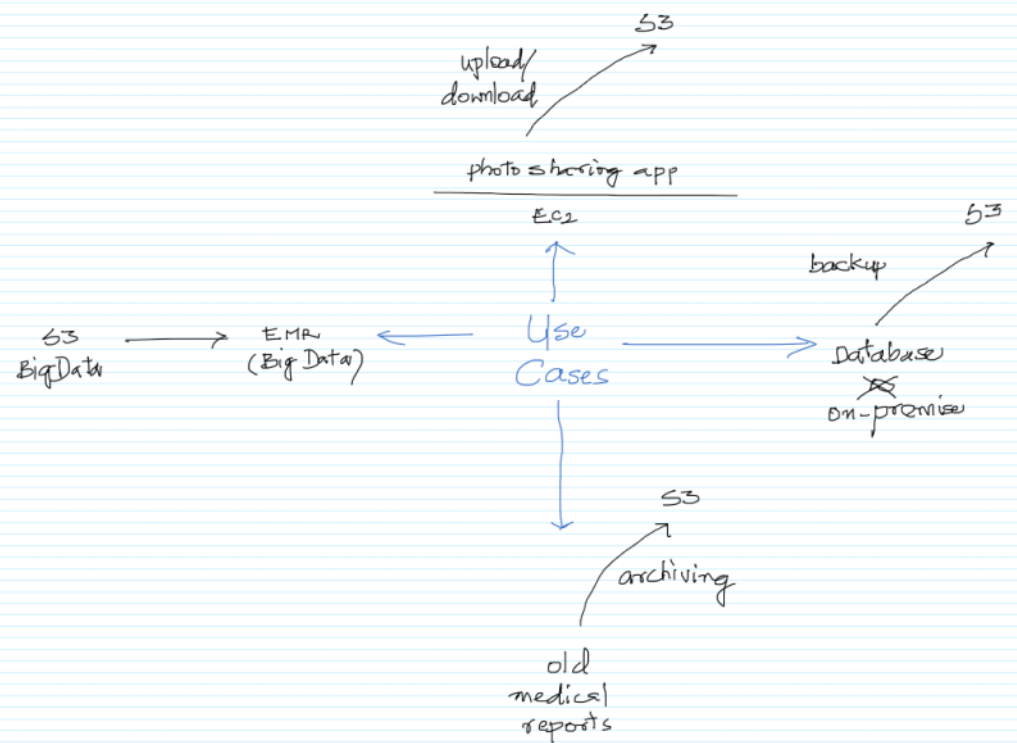 S3
upload/
download
photo sharing app
EC2
S3
backup
Use
Cases
S3
BigData
EMR
(Big Data)
Database
on-premise
S3
archiving
old
medical
reports